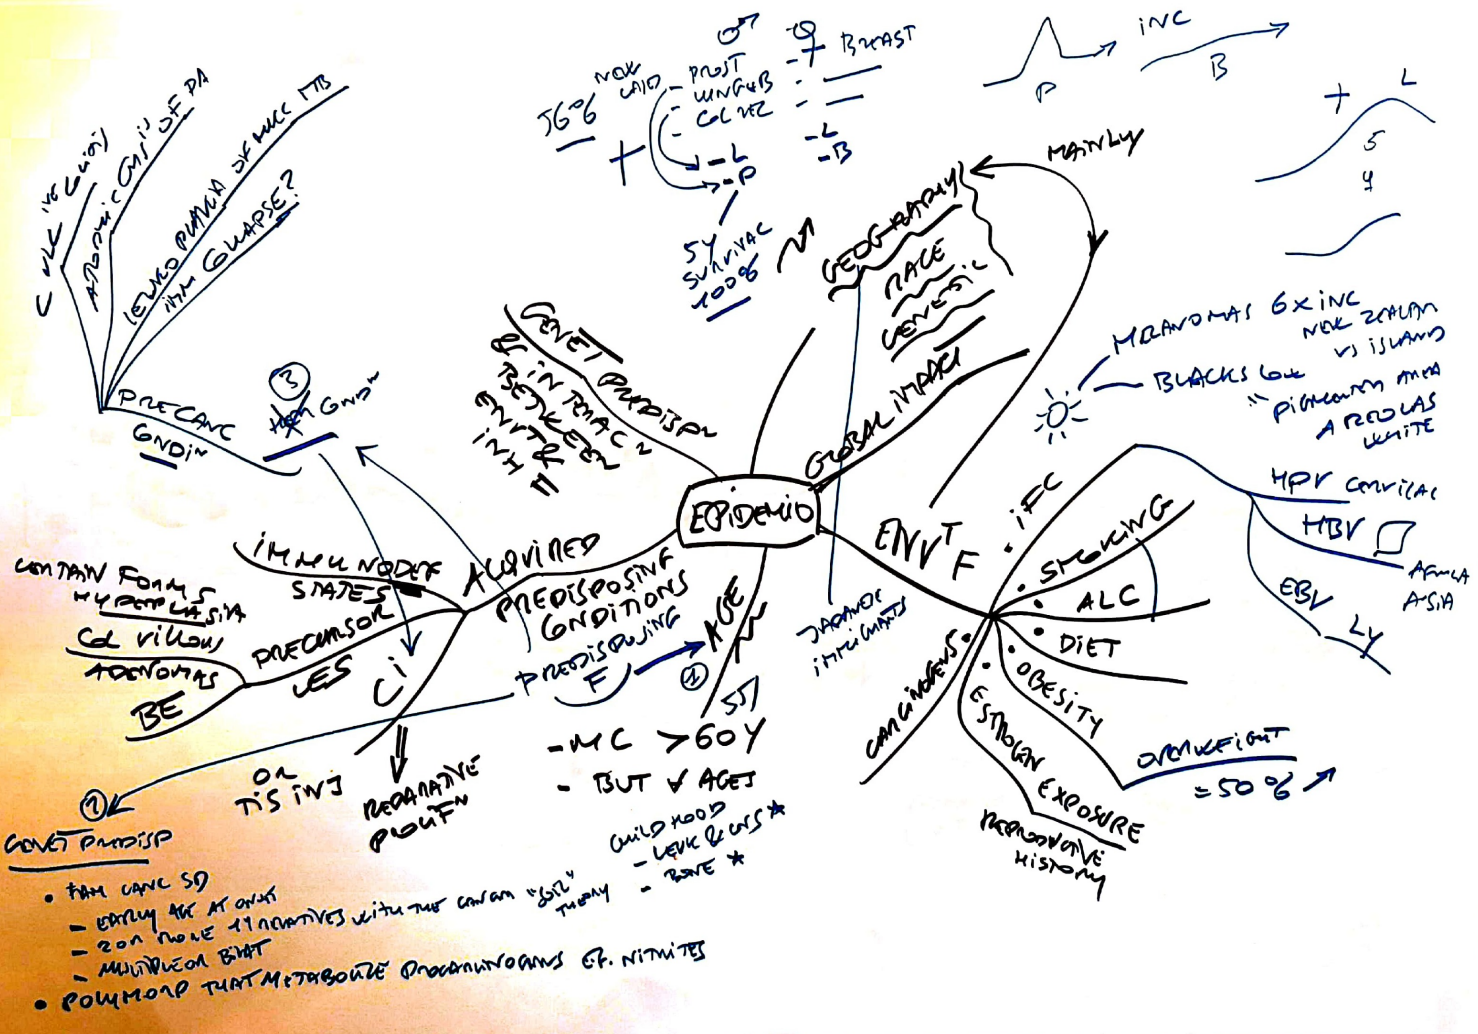 ♂
♀
BREAST
PROST
LUNG & B
COL REC
- L
- P
- L
- B
5Y
SURVIVAL
100%
+
P
INC
B
+
L
5
Y
MAINLY
GEOGRAPHY
RACE
GENETIC
GLOBAL IMPACT
JAPANESE
IMMIGRANTS
MELANOMAS 6X INC
NEW ZEALAN
VS ISLAND
BLACKS LOW
PIGMENTED AREA
AREOLAS
WHITE
GENET PREDISP
& INTERAC
BETWEEN
ENVTR
INH
EPIDEMIO
ENVT F
INFC
HPV CERVICAL
HBV
AFRICA
ASIA
EBV
LY
SMOKING
ALC
DIET
OBESITY
OVERWEIGHT
= 50%
ESTROGEN EXPOSURE
REPRODUCTIVE
HISTORY
CARCINOGENS
AGE
55
- MC > 60Y
- BUT ∀ AGES
CHILDHOOD
- LEUK & CNS *
- BONE *
ACQUIRED
PREDISPOSING
CONDITIONS
PREDISPOSING
F
1
IMMUNODEF
STATES
PRECURSOR
LES
CERTAIN FORMS
HYPERPLASIA
COL VILLOUS
ADENOMAS
BE
CI
OR
TIS INJ
REPARATIVE
PROLIF
3
PRECANC
CONDI
ATROPHIC GAS OF PA
LEUKO PLAKIA OF MUCC MB
IMM COLLAPSE?
2
GENET PREDISP
• FAM CANC SD
- EARLY AGE AT ONSET
- 2 OR MORE 1Y RELATIVES WITH THE CANCER "SOIL"
THEORY
- MULTIPLE OR BILAT
• POLYMORP THAT METABOLIZE PROCARCINOGENS EF. NITRITES